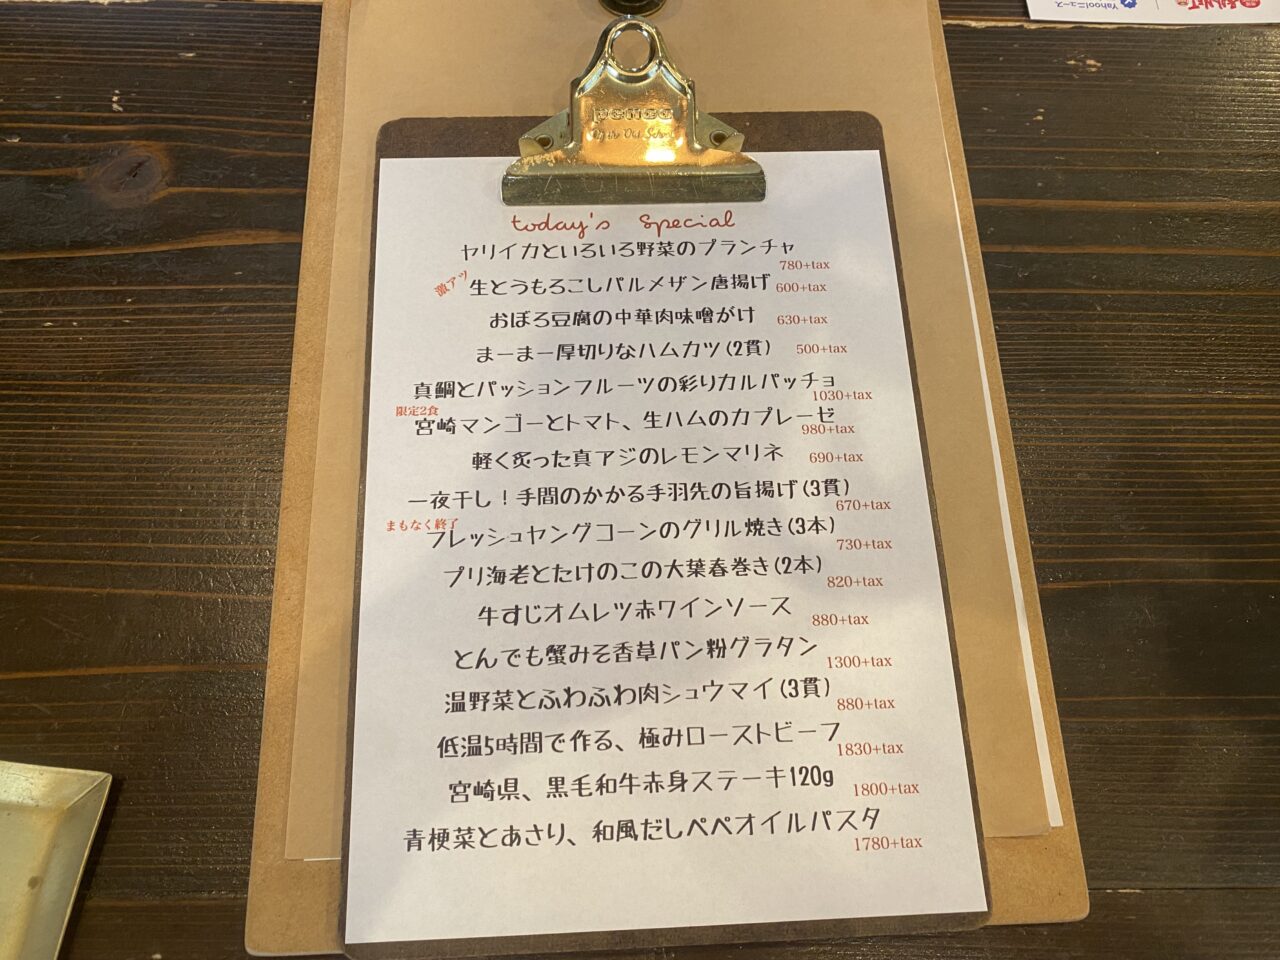 Yahoo!ニュース
PENCO
today's special
ヤリイカといろいろ野菜のプランチャ
780+tax
激アツ
生とうもろこしパルメザン唐揚げ 600+tax
おぼろ豆腐の中華肉味噌がけ 630+tax
まーまー厚切りなハムカツ(2貫) 500+tax
真鯛とパッションフルーツの彩りカルパッチョ
1030+tax
限定2食
宮崎マンゴーとトマト、生ハムのカプレーゼ
980+tax
軽く炙った真アジのレモンマリネ 690+tax
一夜干し！手間のかかる手羽先の旨揚げ(3貫)
670+tax
まもなく終了
フレッシュヤングコーンのグリル焼き(3本)
730+tax
プリ海老とたけのこの大葉春巻き(2本)
820+tax
牛すじオムレツ赤ワインソース 880+tax
とんでも蟹みそ香草パン粉グラタン
1300+tax
温野菜とふわふわ肉シュウマイ(3貫)
880+tax
低温5時間で作る、極みローストビーフ
1830+tax
宮崎県、黒毛和牛赤身ステーキ120g
1800+tax
青梗菜とあさり、和風だしペペオイルパスタ
1780+tax